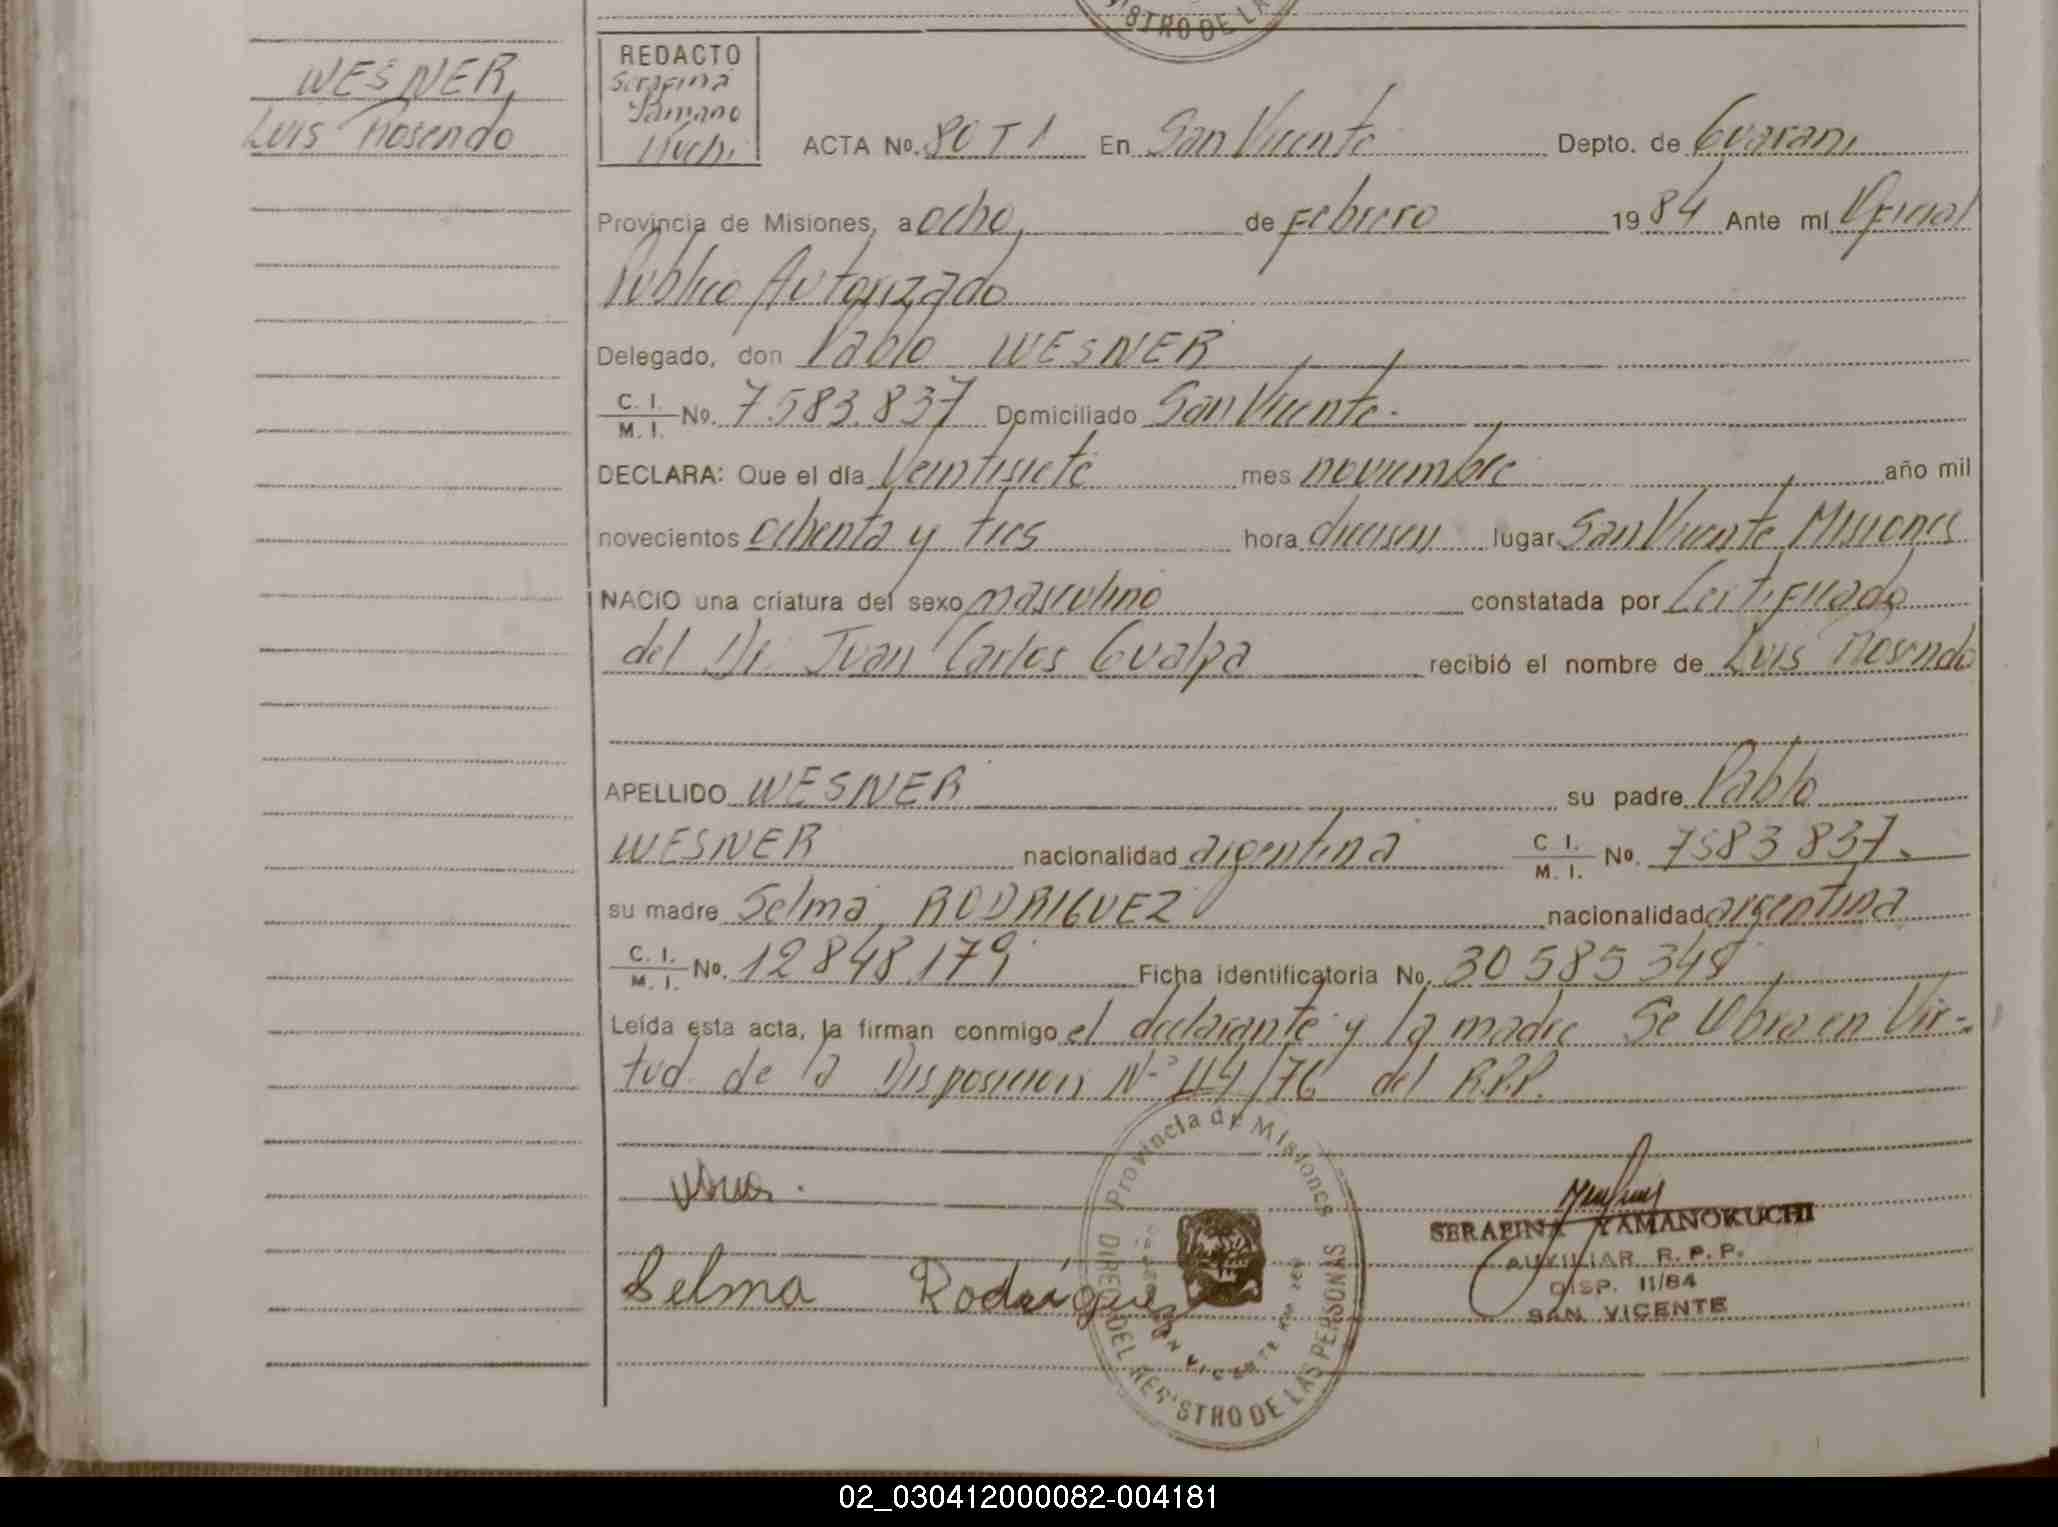 STRO DE LA
WESNER,
Luis Rosendo
REDACTO
Serafina
Yamano
Kuchi
ACTA No. 80 T I En San Vicente Depto. de Guarani
Provincia de Misiones, a ocho, de Febrero 1984 Ante mí Oficial
Público Autorizado
Delegado, don Pablo WESNER
C. I. / M. I. No. 7.583.837 Domiciliado San Vicente.
DECLARA: Que el día Veintisiete mes noviembre año mil
novecientos ochenta y tres hora dieciseis lugar San Vicente Misiones
NACIO una criatura del sexo masculino constatada por Certificado
del Dr. Juan Carlos Gualpa recibió el nombre de Luis Rosendo
APELLIDO WESNER su padre Pablo
WESNER nacionalidad argentina C. I. / M. I. No. 7583 837.
su madre Selma RODRIGUEZ nacionalidad argentina
C. I. / M. I. No. 12848.179 Ficha identificatoria No. 30 585 348
Leída esta acta, la firman conmigo el declarante y la madre Se labra en Vir-
tud de la Disposición Nº 114/76 del R.P.P.
Selma Rodríguez
Provincia de Misiones
DIREC. DEL REGISTRO DE LAS PERSONAS
SAN VICENTE
SERAFINA YAMANOKUCHI
AUXILIAR R. P. P.
DISP. 11/84
SAN VICENTE
02_030412000082-004181